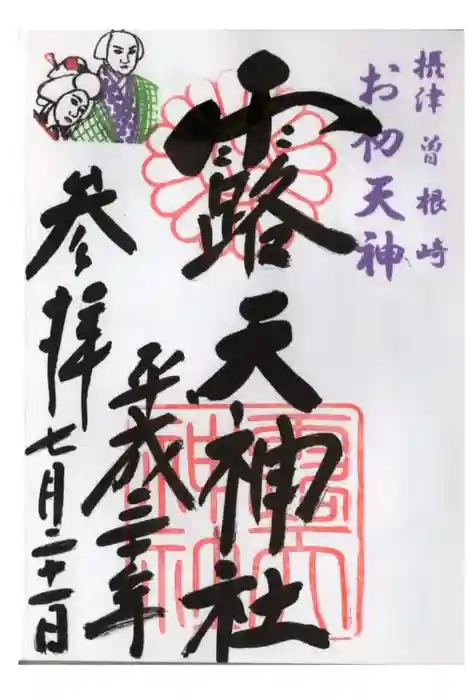 摂津 曽根崎
お初天神
露天神社
平成三十年
参拝
七月二十一日